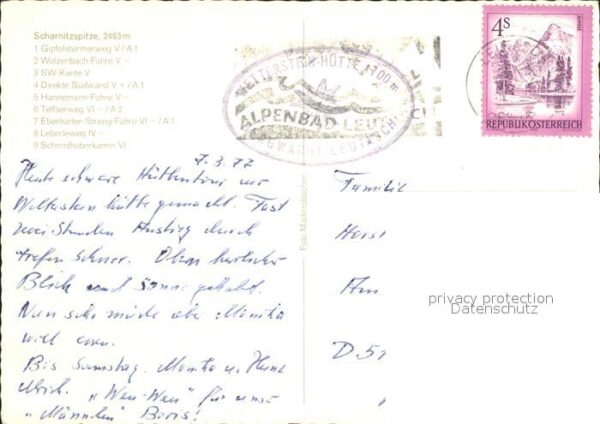 Scharnitzspitze, 2463 m
1 Gipfelstürmerweg V / A 1
2 Welzenbach-Führe V –
3 SW-Kante V
4 Direkte Südwand V + / A 1
5 Hannemann-Führe V –
6 Telfserweg VI – / A 2
7 Eberharter-Streng-Führe VI – / A 1
8 Leberleweg IV –
9 Schmidhuberkamin VI
WETTERSTEIN-HÜTTE 1700 m
ALPENBAD LEUTASCH
BERGWACHT LEUTASCH
4S
REPUBLIK ÖSTERREICH
7.3.77
Heute schwere Hüttentour zur
hütte gemacht. Fast
zwei Stunden Anstieg durch
tiefen Schnee. Oben herrlicher
Blick und Sonne gehabt.
Nun sehr müde aber Monika
will essen.
Bis Samstag. Monika u.
"Wau-Wau" für unse
"Männlein" Boris!
Foto
Familie
Horst
Am
D.51
privacy protection
Datenschutz